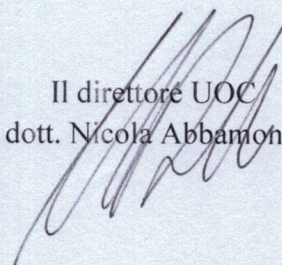 Il direttore UOC
dott. Nicola Abbamon